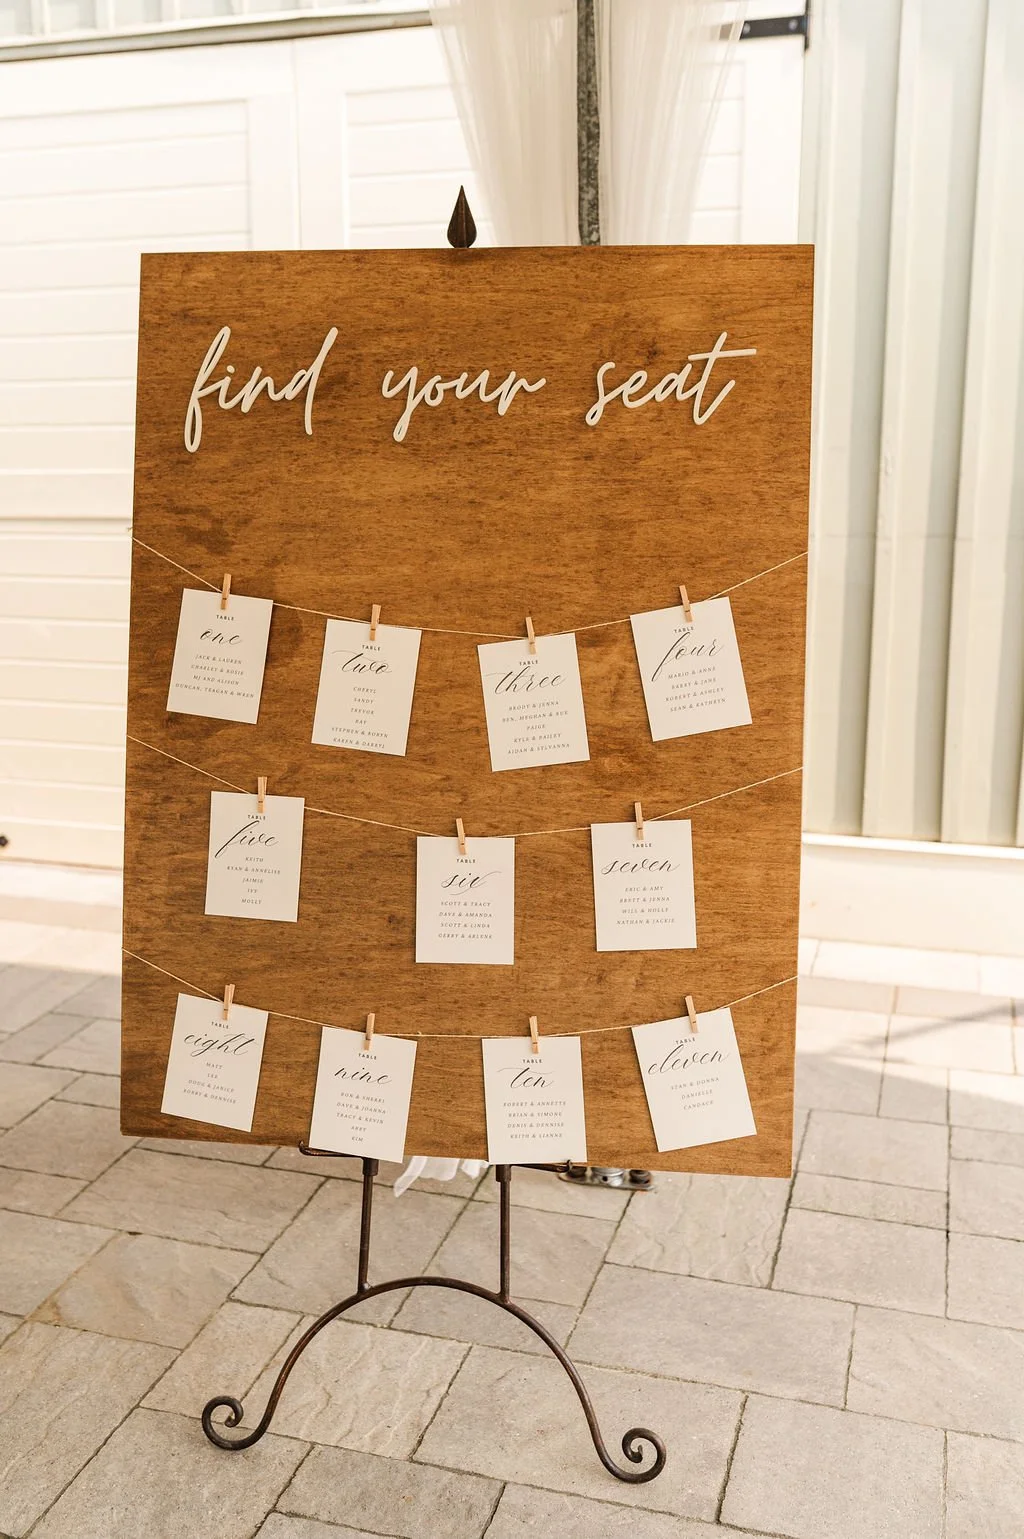 find your seat
TABLE
one
JACK & LAUREN
CHARLEY & ROSIE
MJ AND ALISON
DUNCAN, TEAGAN & WREN
TABLE
two
CHERYL
SANDY
TREVOR
RAY
STEPHEN & ROBYN
KAREN & DARRYL
TABLE
three
BRODY & JENNA
BEN, MEGHAN & SUE
PAIGE
KYLE & BAILEY
AIDAN & SYLVANNA
TABLE
four
MARIO & ANNE
BARRY & JANE
ROBERT & ASHLEY
SEAN & KATHRYN
TABLE
five
KEITH
RYAN & ANNELISE
JAIMIE
IVY
MOLLY
TABLE
six
SCOTT & TRACY
DAVE & AMANDA
SCOTT & LINDA
GERRY & ARLENE
TABLE
seven
ERIC & AMY
BRETT & JENNA
WILL & HOLLY
NATHAN & JACKIE
TABLE
eight
MATT
LEE
DOUG & JANICE
BOBBY & DENNISE
TABLE
nine
RON & SHERRI
DAVE & JOANNA
TRACY & KEVIN
ABBY
KIM
TABLE
ten
ROBERT & ANNETTE
BRIAN & SIMONE
DENIS & DENNISE
KEITH & LIANNE
TABLE
eleven
STAN & DONNA
DANIELLE
CANDACE